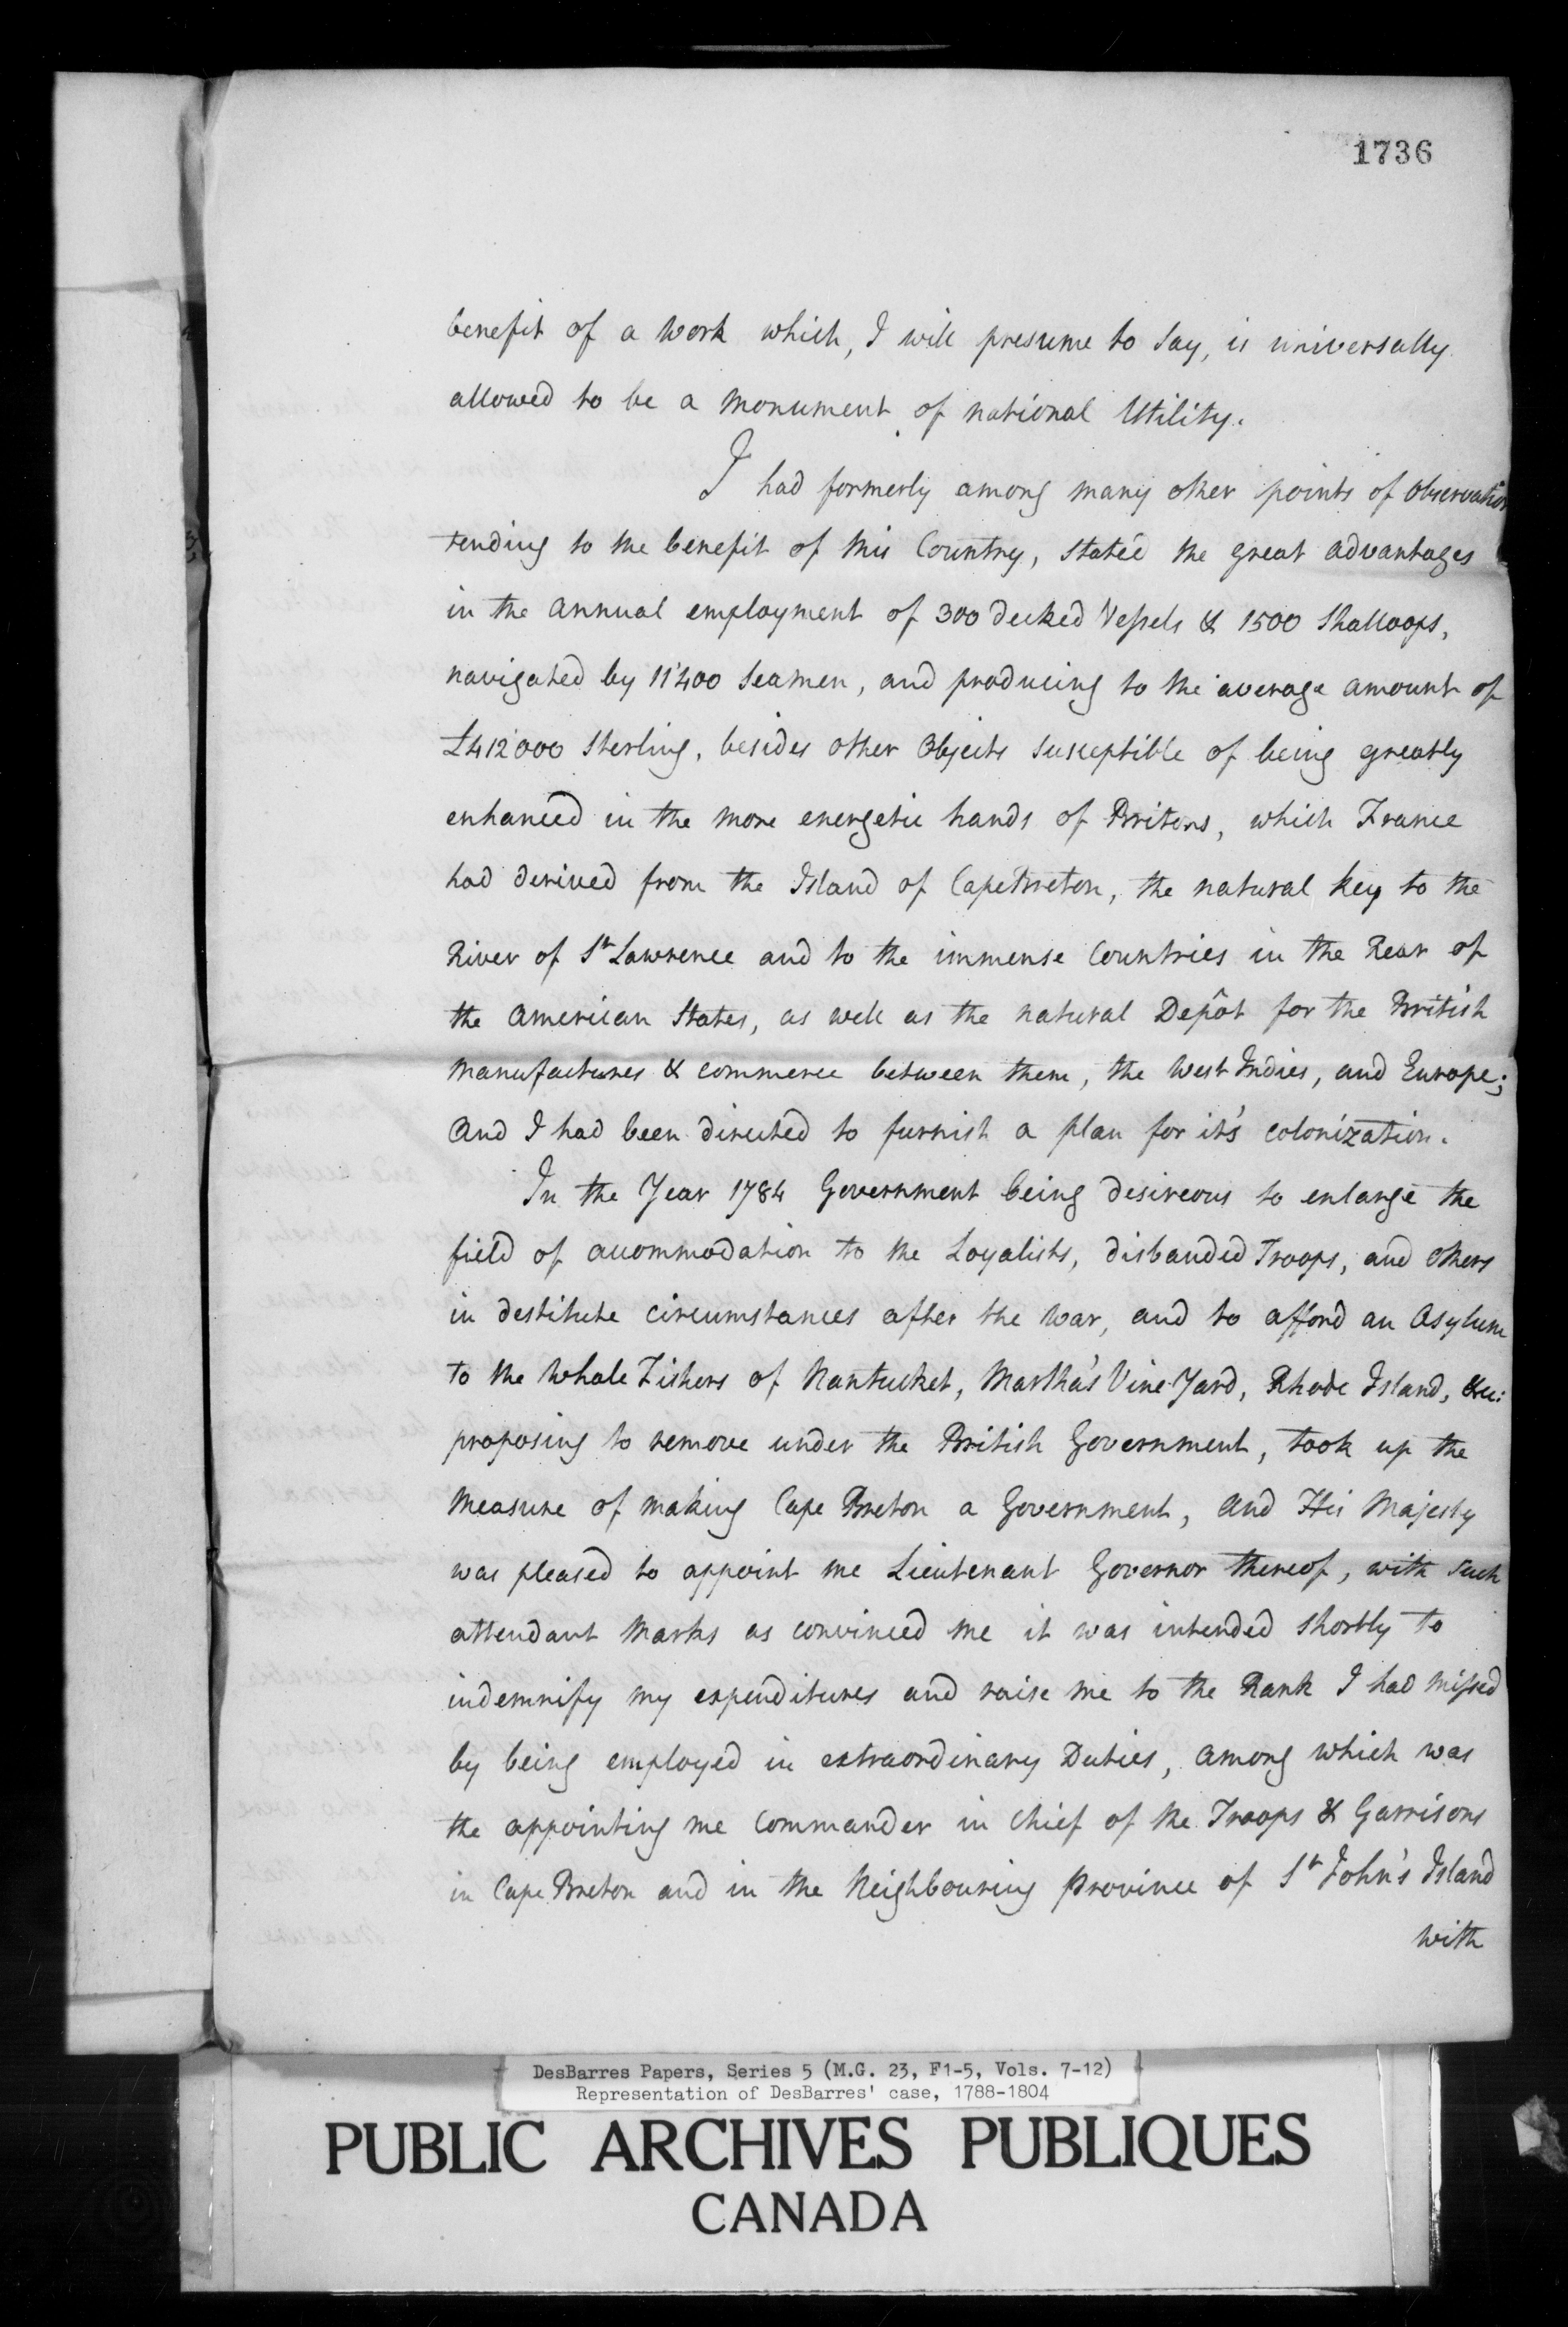 1736
benefit of a Work which, I will presume to say, is universally
allowed to be a monument of national Utility.
I had formerly among many other points of Observation
tending to the benefit of this Country, stated the great advantages
in the annual employment of 300 decked Vessels & 1500 Shalloops,
navigated by 11'400 Seamen, and producing to the average amount of
£412'000 Sterling, besides other Objects susceptible of being greatly
enhanced in the more energetic hands of Britons, which France
had derived from the Island of Cape Breton, the natural key to the
River of St Lawrence and to the immense Countries in the Rear of
the American States, as well as the natural Depôt for the British
manufactures & commerce between them, the West Indies, and Europe;
and I had been directed to furnish a plan for it's colonization.
In the Year 1784 Government being desireous to enlarge the
field of accommodation to the Loyalists, disbanded Troops, and others
in destitute circumstances after the War, and to afford an Asylum
to the Whale Fishers of Nantucket, Martha's Vine Yard, Rhode Island, &c:
proposing to remove under the British Government, took up the
Measure of making Cape Breton a Government, and His Majesty
was pleased to appoint me Lieutenant Governor thereof, with such
attendant Marks as convinced me it was intended shortly to
indemnify my expenditures and raise me to the Rank I had missed
by being employed in extraordinary Duties, among which was
the appointing me Commander in Chief of the Troops & Garrisons
in Cape Breton and in the Neighbouring Province of St John's Island
with
DesBarres Papers, Series 5 (M.G. 23, F1-5, Vols. 7-12)
Representation of DesBarres' case, 1788-1804
PUBLIC ARCHIVES PUBLIQUES
CANADA